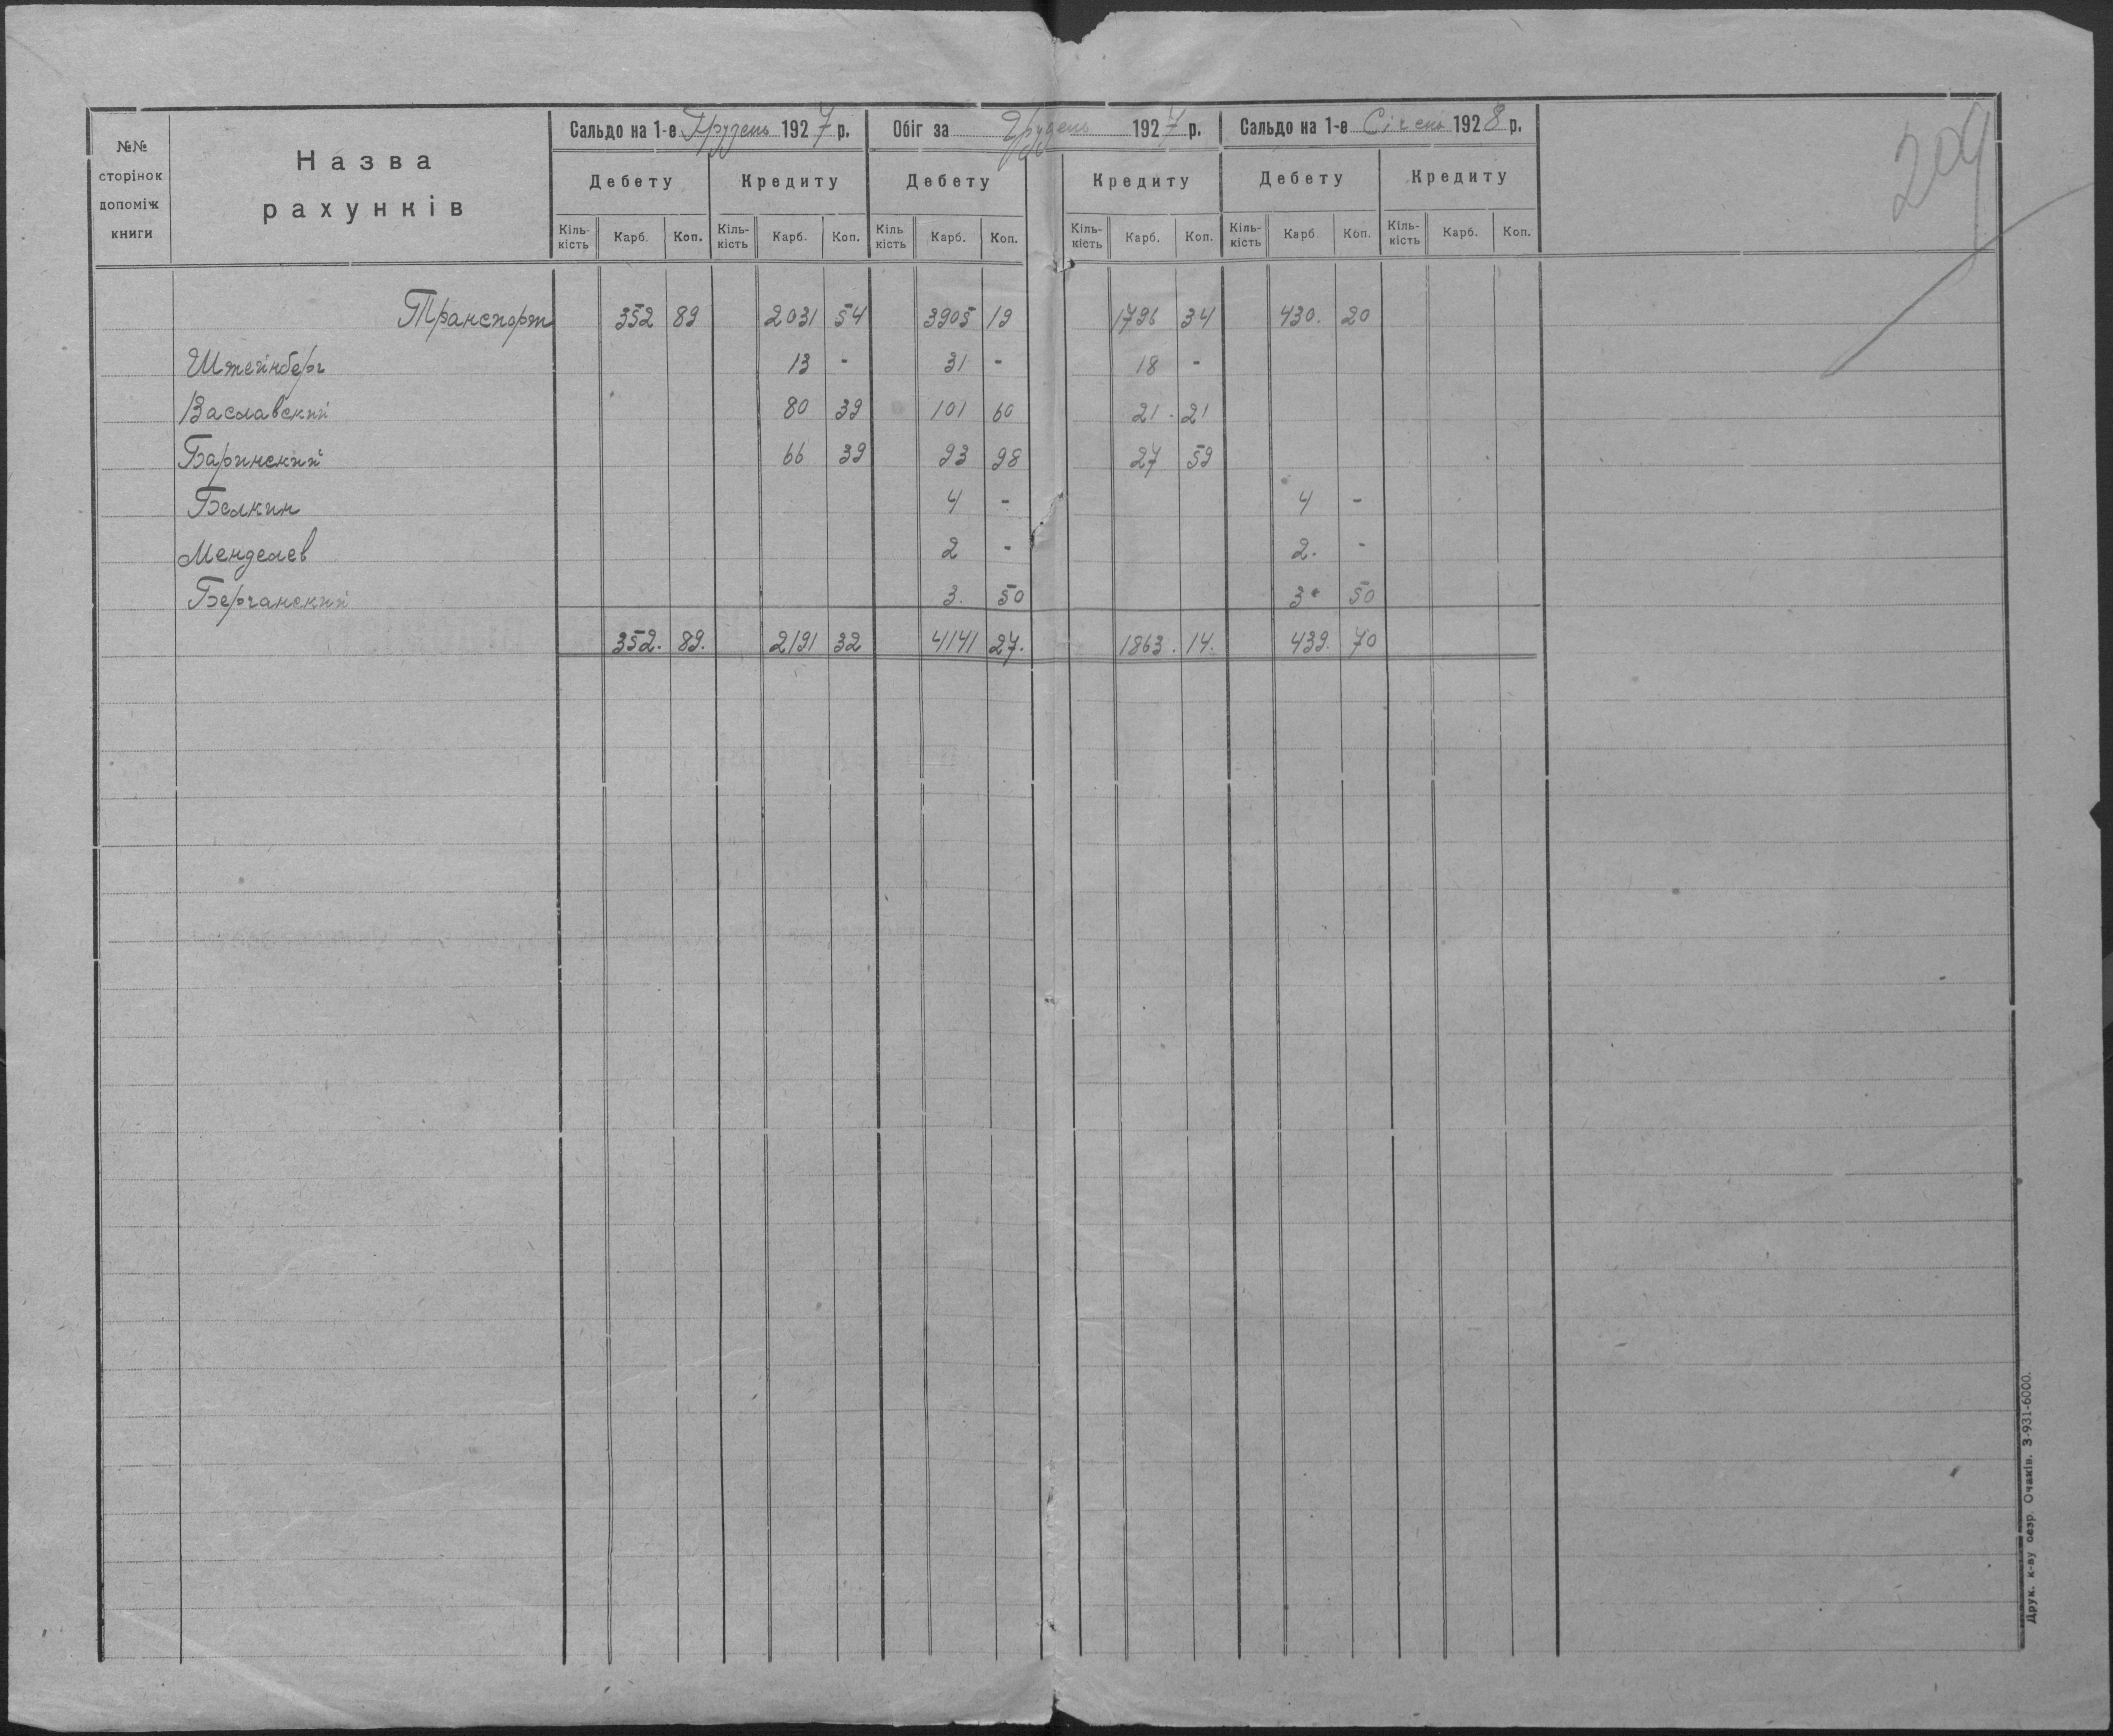 209
№№ сторінок допоміж книги
Назва рахунків
Сальдо на 1-е Грудень 1927 р.
Обіг за Грудень 1927 р.
Сальдо на 1-е Січень 1928 р.
Дебету Кредиту Дебету Кредиту Дебету Кредиту
Кіль-кість Карб. Коп. Кіль-кість Карб. Коп. Кіль кість Карб. Коп. Кіль-кість Карб. Коп. Кіль-кість Карб Коп. Кіль-кість Карб. Коп.
Транспорт 352 89 2031 54 3905 19 1796 34 430. 20
Штейнберг 13 - 31 - 18 -
Заславский 80 39 101 60 21. 21
Баринский 66 39 93 98 27 59
Белкин 4 - 4 -
Менделев 2 - 2. -
Берчанский 3. 50 3 50
352. 89. 2191 32 4141 27. 1863. 14. 439. 70
Друк. к-ву безр. Очаків. З-931-6000.